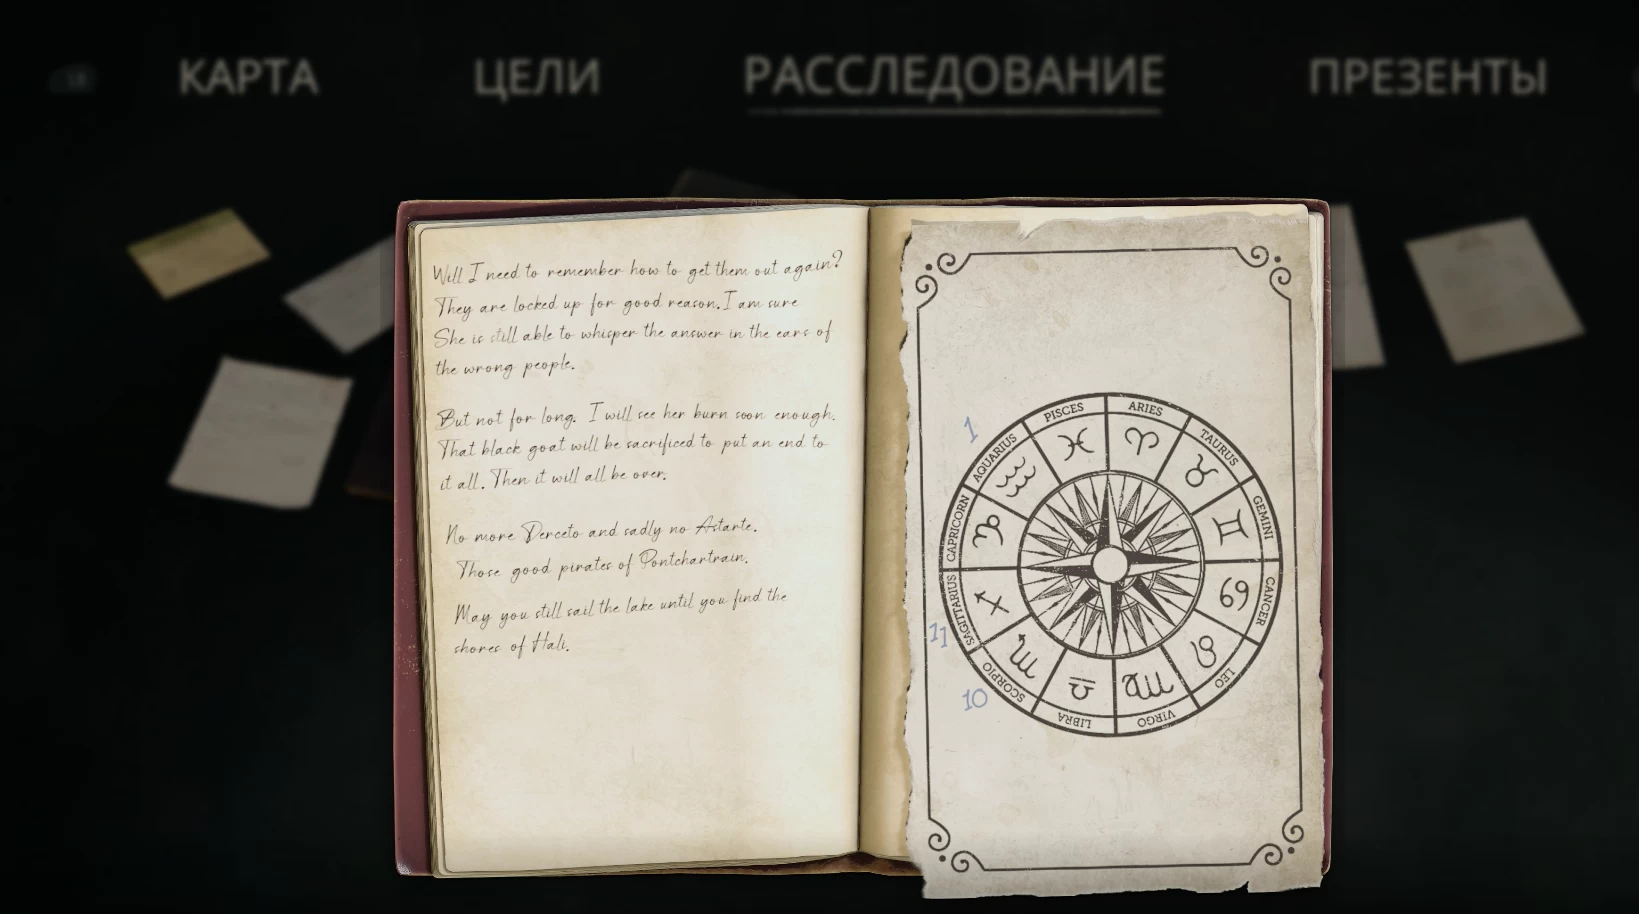 КАРТА
ЦЕЛИ
РАССЛЕДОВАНИЕ
ПРЕЗЕНТЫ
Will I need to remember how to get them out again?
They are locked up for good reason. I am sure
She is still able to whisper the answer in the ears of
the wrong people.
But not for long. I will see her burn soon enough.
That black goat will be sacrificed to put an end to
it all. Then it will all be over.
No more Derceto and sadly no Astarte.
Those good pirates of Pontchartrain.
May you still sail the lake until you find the
shores of Hali.
1
11
10
PISCES
ARIES
TAURUS
GEMINI
CANCER
LEO
VIRGO
LIBRA
SCORPIO
SAGITTARIUS
CAPRICORN
AQUARIUS